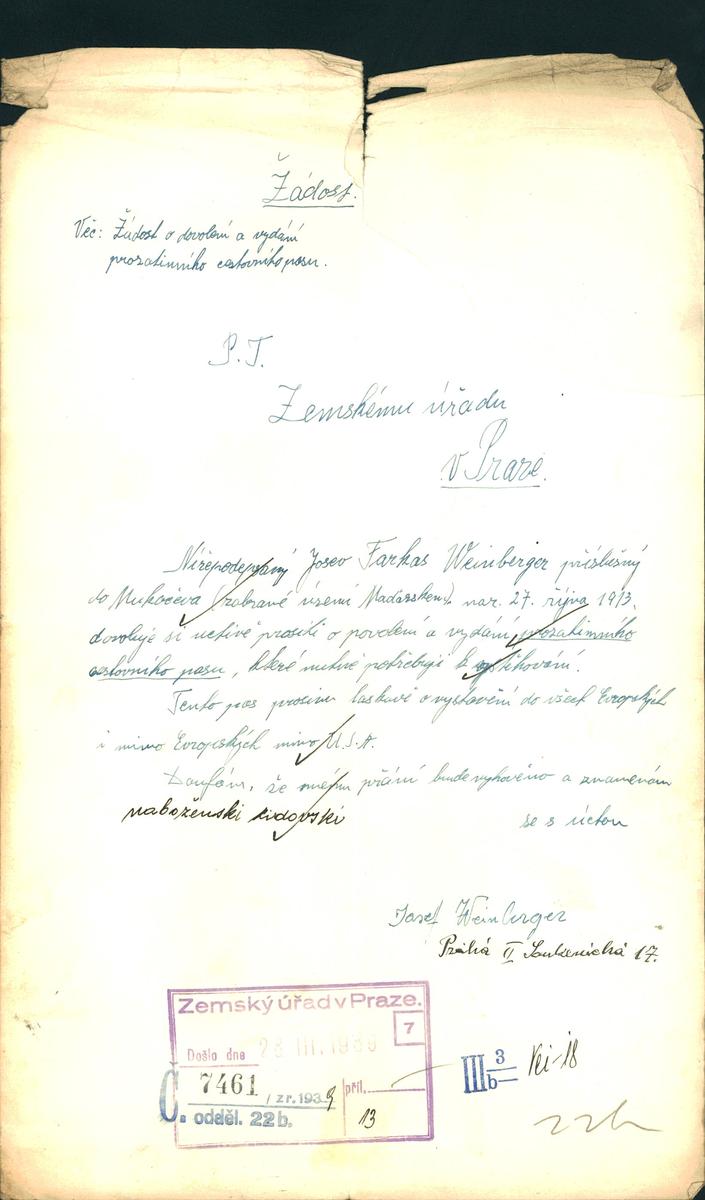 Žádost.
Věc: Žádost o dovolení a vydání
prozatimního cestovního pasu.
P. T.
Zemskému úřadu
v Praze.
Nížepodepsaný Josev Farkas Weinberger příslušný
do Mukačeva (zabrané území Maďarskem) nar. 27. října 1913.
dovoluje si uctivě prositi o povolení a vydání prozatimního
cestovního pasu, které nutně potřebuji k vystěhování.
Tento pas prosím laskavě o vystavění do všech Evropských
i mimo Evropských mimo U.S.A.
Doufám, že mému přání bude vyhověno a znamenám
naboženski židovski
se s úctou
Josef Weinberger
Praha II Soukenická 17.
Zemský úřad v Praze.
7
Došlo dne 23 III. 1939
Č. 7461 / z r. 1939 příl.
odděl. 22b. 13
III 3 b Vei-18
22b